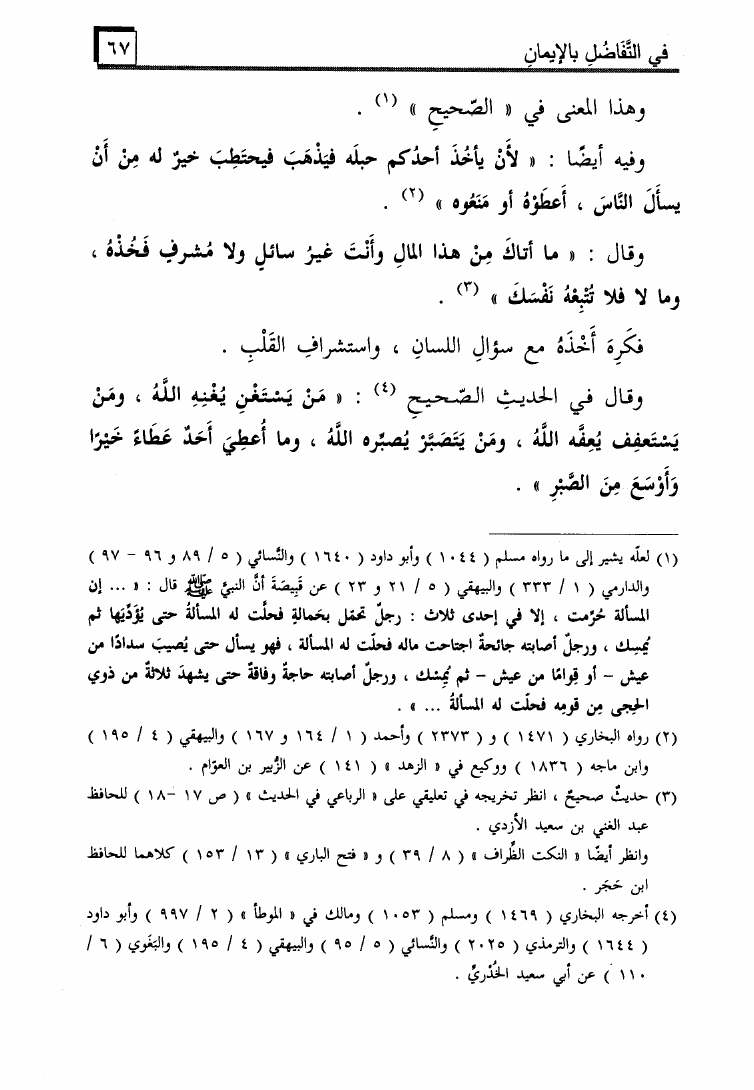 في التَّفَاضُلِ بالإيمانِ
٦٧
وهذا المعنى في « الصّحيحِ » (١) .
وفيه أيضًا : « لأَنْ يأخُذَ أحدُكم حبلَه فيَذْهَبَ فيحتطِبَ خيرٌ له مِنْ أَنْ
يسألَ النَّاسَ ، أَعطَوْهُ أو مَنَعُوه » (٢) .
وقال : « ما أتاكَ مِنْ هذا المالِ وأَنْتَ غيرُ سائلٍ ولا مُشرفٍ فَخُذْهُ ،
وما لا فلا تُتْبِعْهُ نَفْسَكَ » (٣) .
فكَرِهَ أَخْذَهُ مع سؤالِ اللسانِ ، واستشرافِ القَلْبِ .
وقال في الحديثِ الصّحيحِ (٤) : « مَنْ يَسْتَغْنِ يُغْنِهِ اللَّهُ ، ومَنْ
يَسْتَعفِف يُعِفَّه اللَّهُ ، ومَنْ يَتَصَبَّرْ يُصبِّره اللَّهُ ، وما أُعطِيَ أَحَدٌ عَطَاءً خَيْرًا
وَأَوْسَعَ مِنَ الصَّبْرِ » .
(١) لعلّه يشير إلى ما رواه مسلم ( ١٠٤٤ ) وأبو داود ( ١٦٤٠ ) والنَّسائي ( ٥ / ٨٩ و ٩٦ – ٩٧ )
والدارمي ( ١ / ٣٣٣ ) والبيهقي ( ٥ / ٢١ و ٢٣ ) عن قَبِيصَةَ أنَّ النبيَّ ﷺ قال : « ... إن
المسألة حُرِّمت ، إلا في إحدى ثلاث : رجلٌ تحمّل بحَمالةٍ فحلَّت له المسألةُ حتى يُؤَدِّيَها ثم
يُمسِك ، ورجلٌ أصابته جائحةٌ اجتاحت ماله فحلّت له المسألة ، فهو يسأل حتى يُصيبَ سدادًا من
عيش – أو قِوامًا من عيش – ثم يُمِسْك ، ورجلٌ أصابته حاجةٌ وفاقةٌ حتى يشهدَ ثلاثةٌ من ذوي
الحِجى مِن قومِه فحلّت له المسألةُ ... » .
(٢) رواه البخاري ( ١٤٧١ ) و ( ٢٣٧٣ ) وأحمد ( ١ / ١٦٤ و ١٦٧ ) والبيهقي ( ٤ / ١٩٥ )
وابن ماجه ( ١٨٣٦ ) ووكيع في « الزهد » ( ١٤١ ) عن الزُّبير بن العوّام .
(٣) حديثٌ صحيحٌ ، انظر تخريجه في تعليقي على « الرباعي في الحديث » ( ص ١٧ –١٨ ) للحافظ
عبد الغني بن سعيد الأزدي .
وانظر أيضًا « النكت الظِّراف » ( ٨ / ٣٩ ) و « فتح الباري » ( ١٣ / ١٥٣ ) كلاهما للحافظ
ابن حَجَر .
(٤) أخرجه البخاري ( ١٤٦٩ ) ومسلم ( ١٠٥٣ ) ومالك في « الموطأ » ( ٢ / ٩٩٧ ) وأبو داود
( ١٦٤٤ ) والترمذي ( ٢٠٢٥ ) والنَّسائي ( ٥ / ٩٥ ) والبيهقي ( ٤ / ١٩٥ ) والبَغَوي ( ٦ /
١١٠ ) عن أبي سعيد الخُدْريِّ .